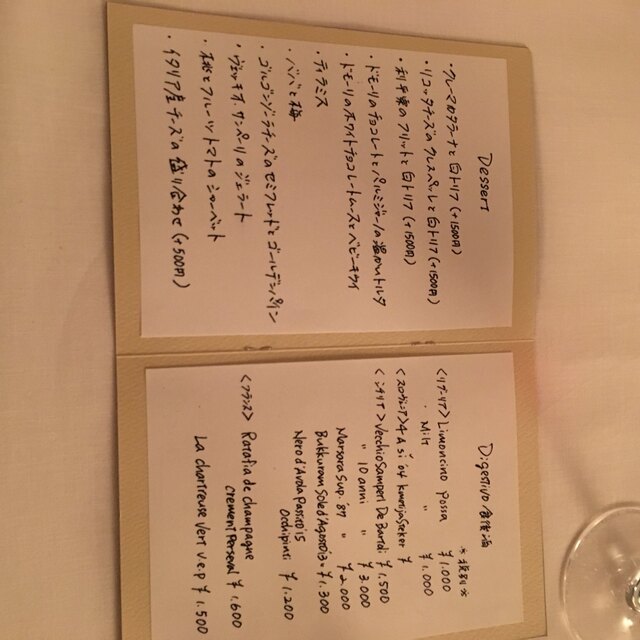 Dessert
・クレーマカタラーナと白トリフ (+1500円)
・リコッタチーズのクレスペッレと白トリフ (+1500円)
・利平栗のフリットと白トリフ (+1500円)
・ドモーリのチョコレートとパルミジャーノの温かいトルタ
・ドモーリのホワイトチョコレートムースとベビーキウイ
・ティラミス
・ババと梅
・ゴルゴンゾーラチーズのセミフレッドとゴールデンパイン
・ヴェッキオ・サンペーリのジェラート
・桃とフルーツトマトのシャーベット
・イタリア産チーズの盛り合わせ (+500円)
Digestivo 食後酒
※税別※
<リグーリア> Limoncino Possa ¥1.000
・Milt 〃 ¥1.000
<スロヴェニア> 4 A si '04 ¥
<シチリア> Vecchio Samperi De Bartoli ¥1.500
〃 10 anni 〃 ¥3.000
Marsara Sup. '87 〃 ¥2.000
Bukkuram Sole d'Agosto 〃 ¥1.300
Nero d'Avola Passito 15
Occhipinti ¥1.200
<フランス> Ratafia de champagne
¥1.600
La chartreuse Vert v.e.p ¥1.500